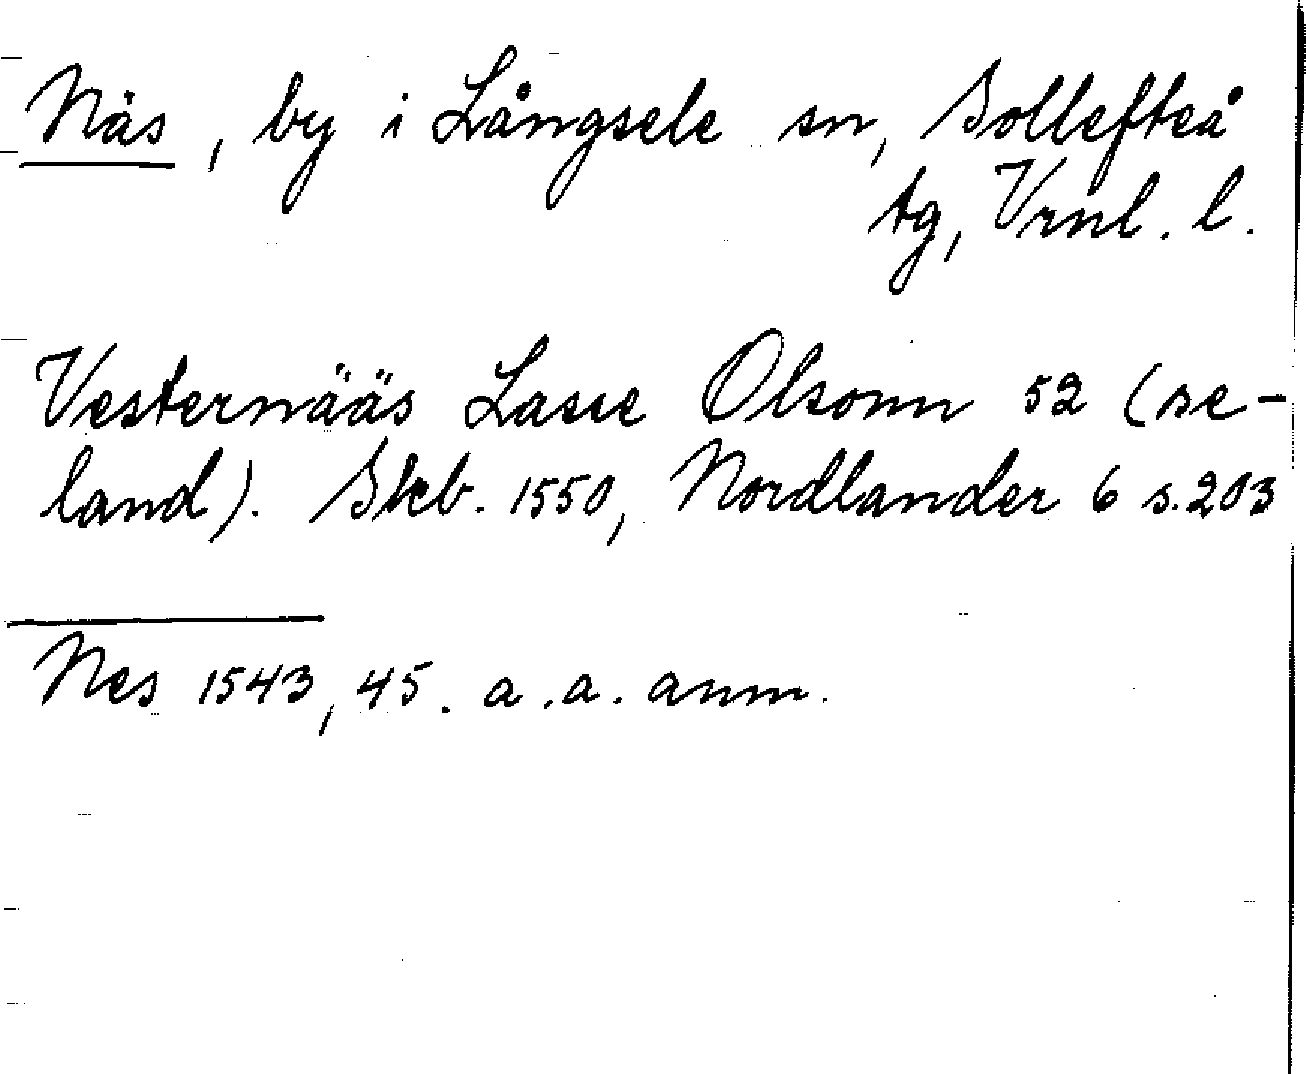 Näs, by i Långsele sn, Sollefteå
tg, Vrnl. l.
Vesternääs Lasse Olsonn 52 (se-
land). Skb. 1550, Nordlander 6 s. 203
Nes 1543, 45. a. a. anm.